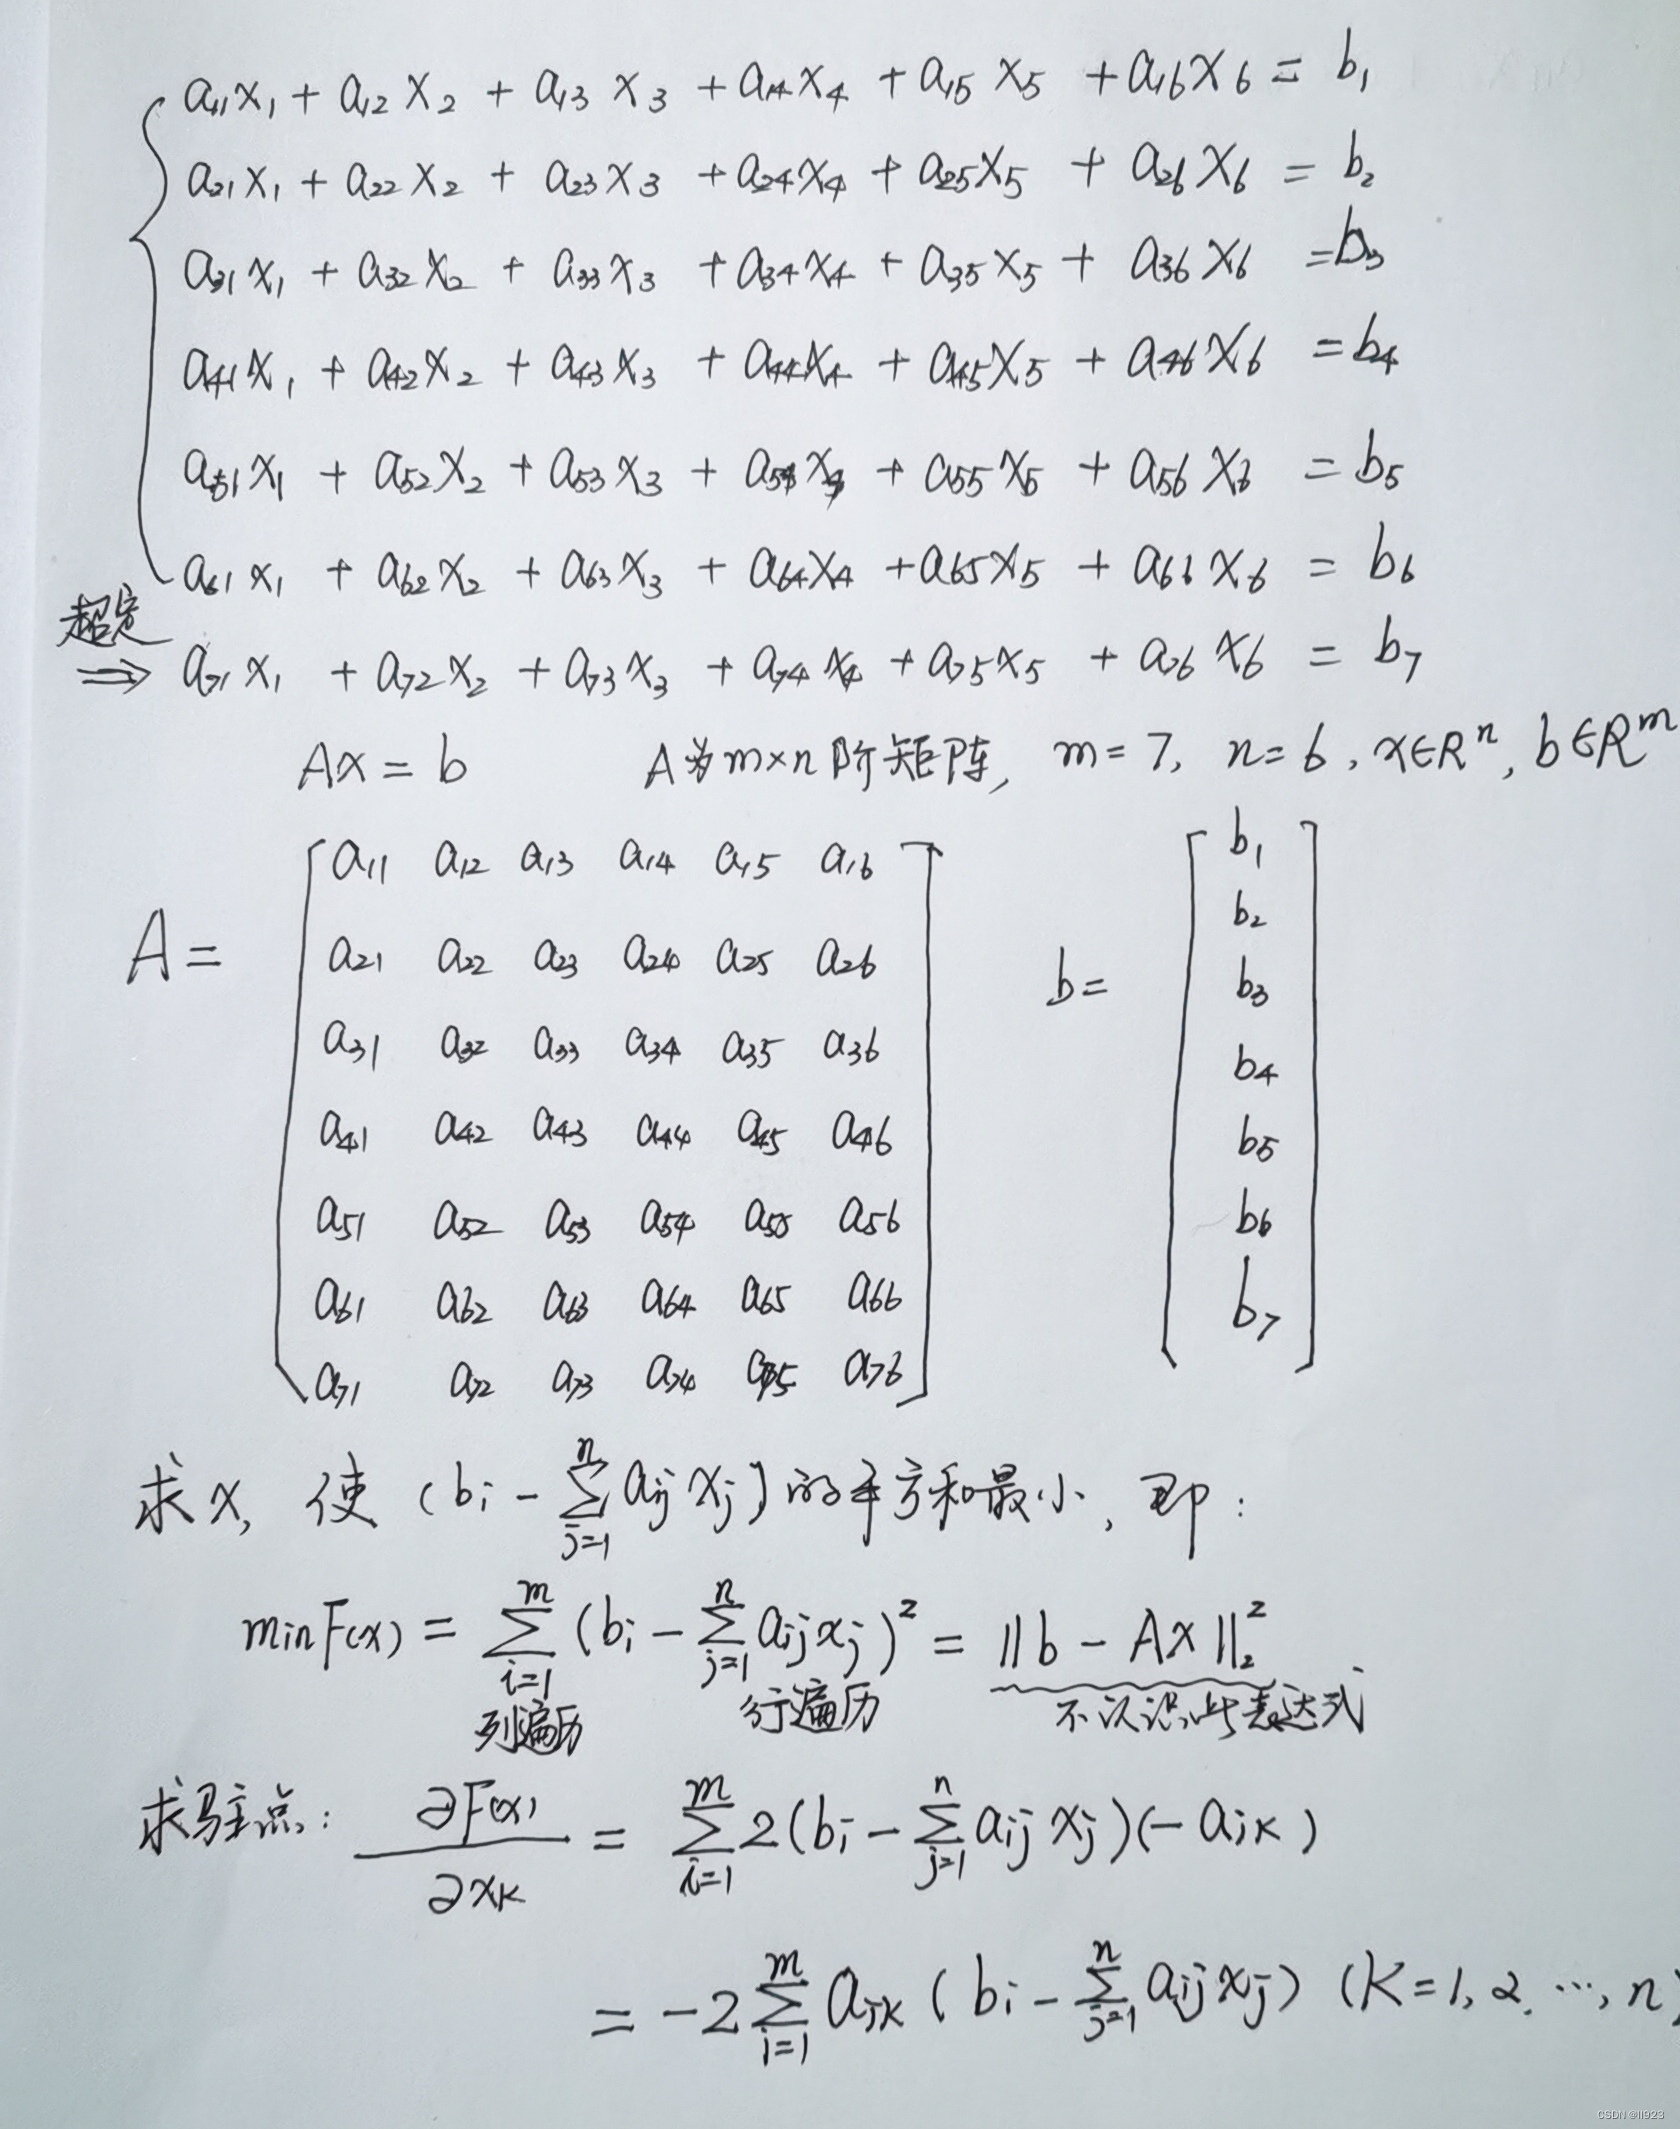 a₁₁x₁ + a₁₂x₂ + a₁₃x₃ + a₁₄x₄ + a₁₅x₅ + a₁₆x₆ = b₁
a₂₁x₁ + a₂₂x₂ + a₂₃x₃ + a₂₄x₄ + a₂₅x₅ + a₂₆x₆ = b₂
a₃₁x₁ + a₃₂x₂ + a₃₃x₃ + a₃₄x₄ + a₃₅x₅ + a₃₆x₆ = b₃
a₄₁x₁ + a₄₂x₂ + a₄₃x₃ + a₄₄x₄ + a₄₅x₅ + a₄₆x₆ = b₄
a₅₁x₁ + a₅₂x₂ + a₅₃x₃ + a₅₄x₄ + a₅₅x₅ + a₅₆x₆ = b₅
a₆₁x₁ + a₆₂x₂ + a₆₃x₃ + a₆₄x₄ + a₆₅x₅ + a₆₆x₆ = b₆
超定
⇒ a₇₁x₁ + a₇₂x₂ + a₇₃x₃ + a₇₄x₄ + a₇₅x₅ + a₇₆x₆ = b₇
Ax = b A为m×n阶矩阵, m=7, n=6, x∈Rⁿ, b∈Rᵐ
a₁₁ a₁₂ a₁₃ a₁₄ a₁₅ a₁₆ b₁
a₂₁ a₂₂ a₂₃ a₂₄ a₂₅ a₂₆ b₂
A = b =
a₃₁ a₃₂ a₃₃ a₃₄ a₃₅ a₃₆ b₃
a₄₁ a₄₂ a₄₃ a₄₄ a₄₅ a₄₆ b₄
a₅₁ a₅₂ a₅₃ a₅₄ a₅₅ a₅₆ b₅
a₆₁ a₆₂ a₆₃ a₆₄ a₆₅ a₆₆ b₆
a₇₁ a₇₂ a₇₃ a₇₄ a₇₅ a₇₆ b₇
求x, 使 (bᵢ - ∑ⱼ₌₁ⁿ aᵢⱼxⱼ) 的平方和最小, 即:
minF(x) = ∑ᵢ₌₁ᵐ (bᵢ - ∑ⱼ₌₁ⁿ aᵢⱼxⱼ)² = ||b - Ax||₂²
列遍历 行遍历 不认识此表达式
求驻点: ∂F(x)/∂xₖ = ∑ᵢ₌₁ᵐ 2(bᵢ - ∑ⱼ₌₁ⁿ aᵢⱼxⱼ)(-aᵢₖ)
= -2∑ᵢ₌₁ᵐ aᵢₖ(bᵢ - ∑ⱼ₌₁ⁿ aᵢⱼxⱼ) (K=1, 2, ⋯, n)
CSDN @ll923